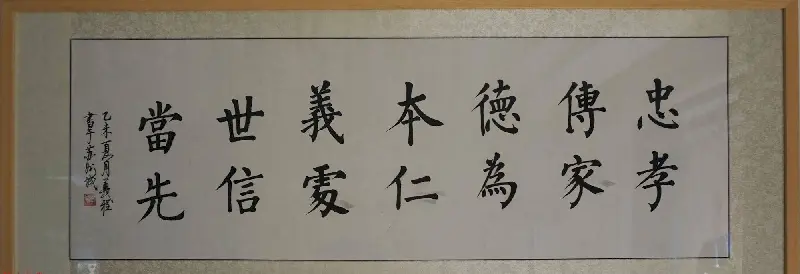 忠孝
傳家
德為
本仁
義處
世信
當先
乙未夏月
書於蘇州